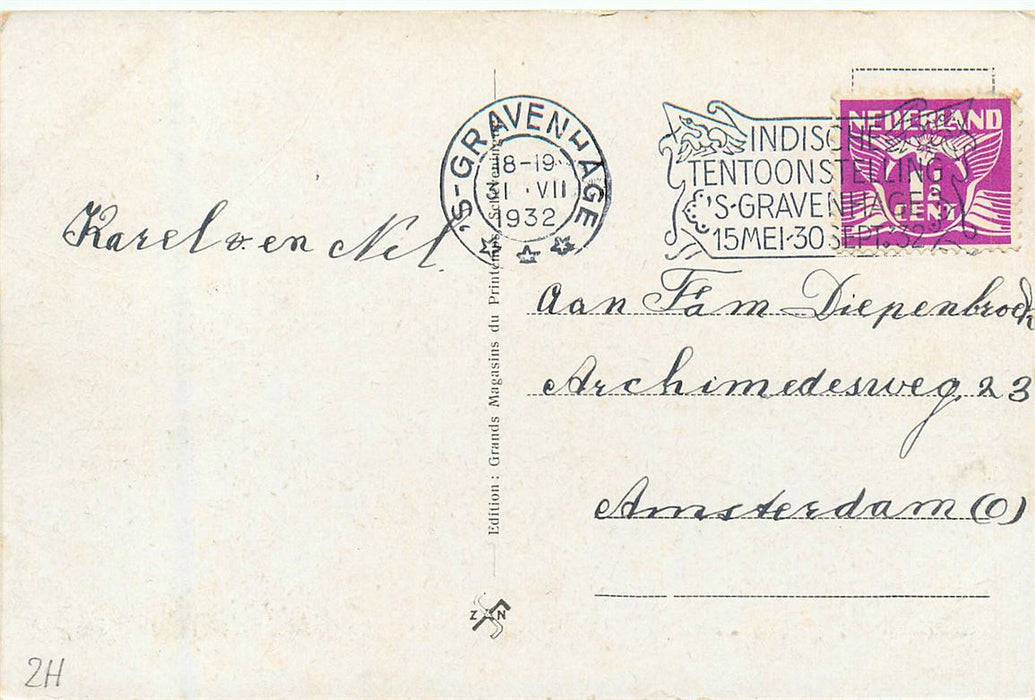 'S-GRAVENHAGE
18-19
31 VII
1932
INDISCHE
TENTOONSTELLING
'S-GRAVENHAGE
15 MEI-30 SEPT. '32
NEDERLAND
CENT
Karel en Nel.
Aan Fam Diepenbroek
Archimedesweg 23
Amsterdam (O)
Edition : Grands Magasins du Printemps, Scheveningen
Z N
2H